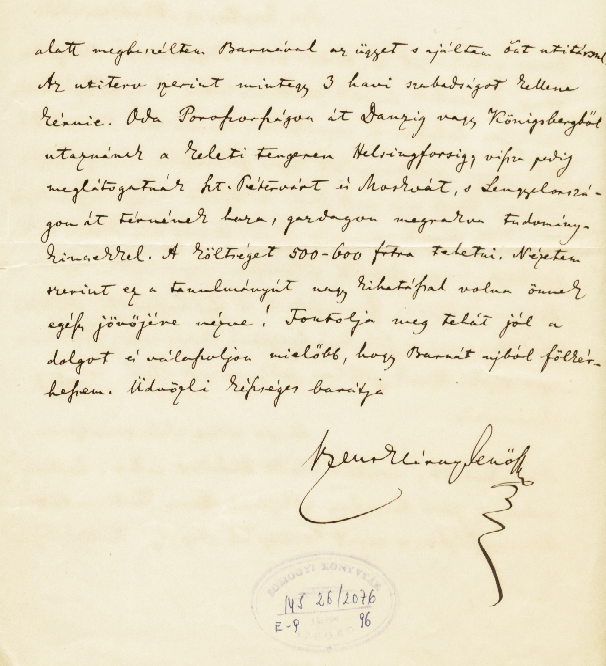 alatt megbeszéltem Barnával az ügyet s ajáltem Önt utitársul
Az utiterv szerint mintegy 3 havi szabadságot kellene
kérnie. Oda Poroszországon át Danzig vagy Königsbergből
utaznának a keleti tengeren Helsingforsig, vissza pedig
meglátogatnák Szt.-Pétervárt és Moskvát, s Lengyelorszá-
gon át térnének haza, gazdagon megrakva tudomány-
kincsekkel. A költséget 500-600 frtra tehetni. Nézetem
szerint ez a tanulmányút nagy kihatással volna önnek
egész jövőjére nézve! Fontolja meg tehát jól a
dolgot és válaszoljon mielőbb, hogy Barnát ujból fölkér-
hessem. Üdvözli képséges barátja
Szentkláray Jenő
SOMOGYI KÖNYVTÁR
145 26/2076
E-9 96